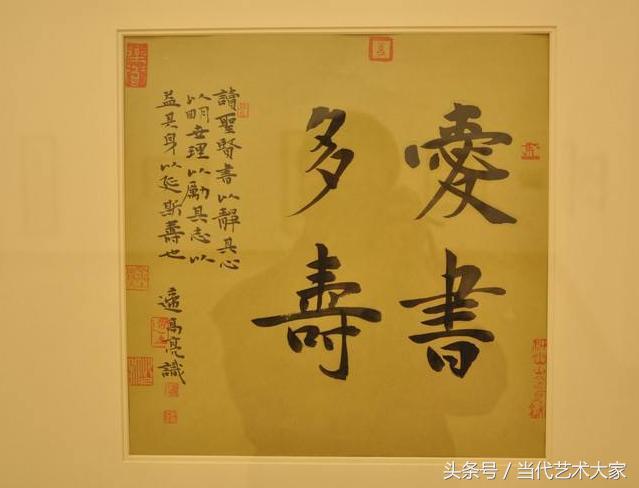 愛書
多壽
讀聖賢書以靜其心
以明安理以勵其志以
益其身以延斯壽也
高亮識
头条号 / 当代艺术大家